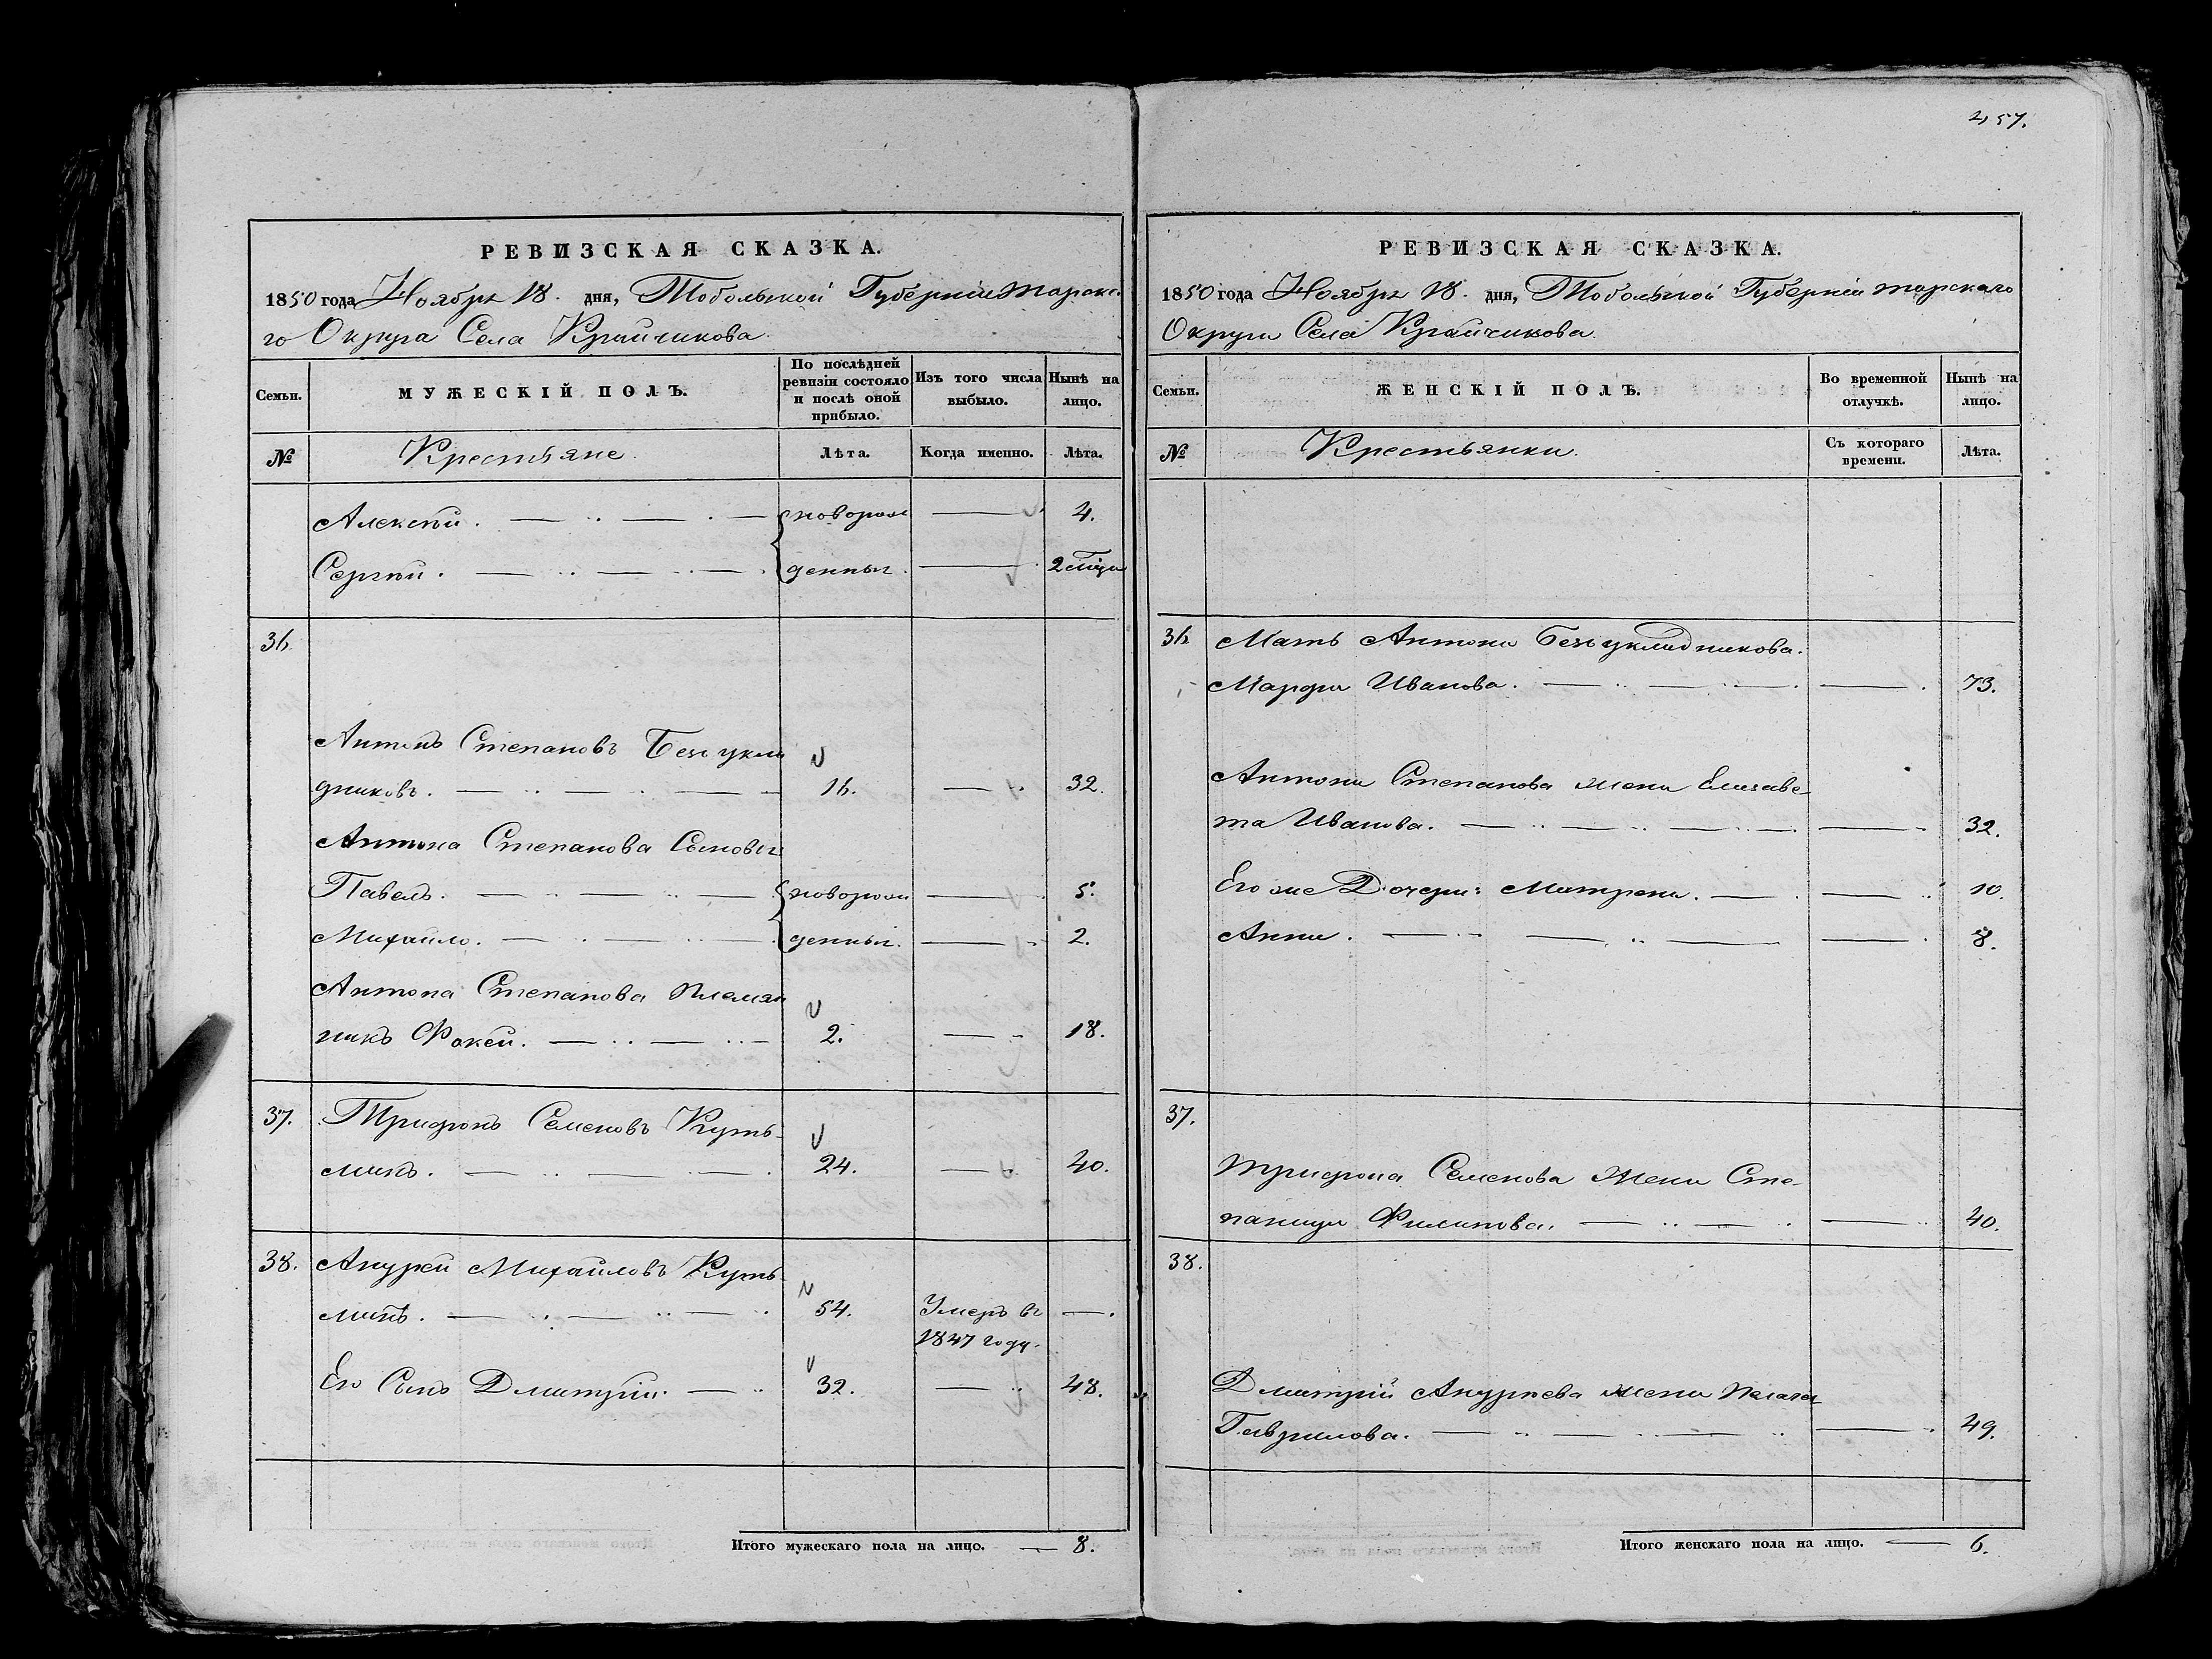 457.
РЕВИЗСКАЯ СКАЗКА.
1850 года Ноября 18. дня, Тобольской Губерніи Тарска-
го Округа Села Крайчикова.
Семьи.
МУЖЕСКІЙ ПОЛЪ.
По послѣдней ревизіи состояло и послѣ оной прибыло.
Изъ того числа выбыло.
Нынѣ на лицо.
№
Крестьяне.
Лѣта.
Когда именно.
Лѣта.
Алексѣй. новорож 4.
Сергѣй. денныя. 2 мца
36.
Антонъ Степановъ Безъукла
дниковъ. 16. 32.
Антона Степанова Сыновья
Павелъ. новорож 5.
Михайло. денныя. 2.
Антона Степанова племян
никъ Фокей. 2. 18.
37. Трифонъ Семеновъ Куть-
минъ. 24. 40.
38. Андрей Михайловъ Куть-
минъ. 54. Умеръ въ
1847 году.
Его Сынъ Дмитрій. 32. 48.
Итого мужескаго пола на лицо. 8.
РЕВИЗСКАЯ СКАЗКА.
1850 года Ноября 18. дня, Тобольской Губерніи Тарскаго
Округа Села Крайчикова.
Семьи.
ЖЕНСКІЙ ПОЛЪ.
Во временной отлучкѣ.
Нынѣ на лицо.
№
Крестьянки.
Съ котораго времени.
Лѣта.
36. Мать Антона Безъукладникова.
Марфа Иванова. 73.
Антона Степанова жена Елизаве-
та Иванова. 32.
Его же Дочери: Матрена. 10.
Анна. 8.
37.
Трифона Семенова Жена Сте-
панида Филипова. 40.
38.
Дмитрій Андреева жена Пелагея
Гаврилова. 49.
Итого женскаго пола на лицо. 6.